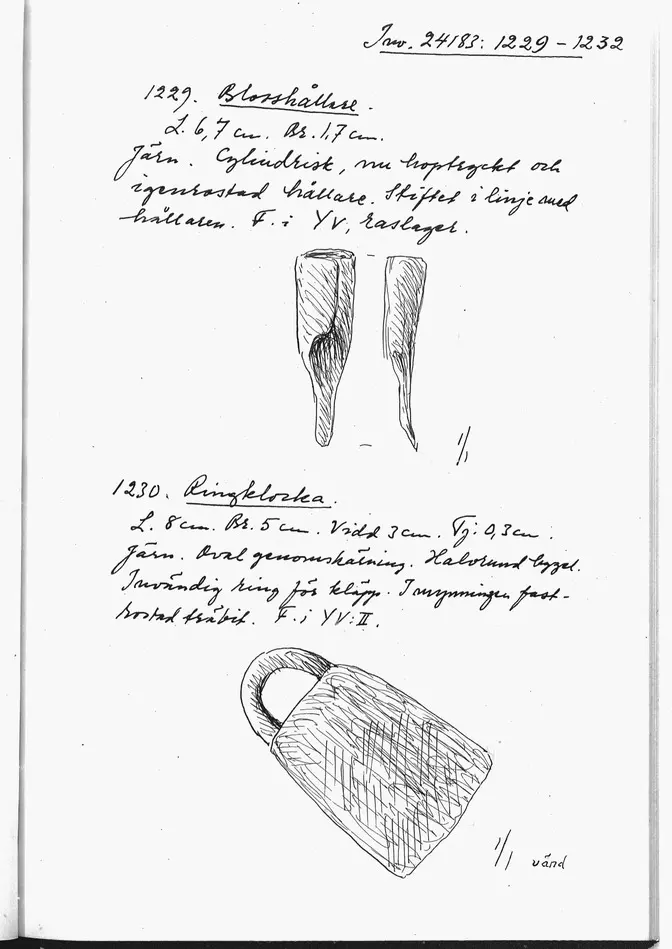 Inv. 24183: 1229 – 1232
1229. Blosshållare.
L. 6,7 cm. Br. 1,7 cm.
Järn. Cylindrisk, nu hoptryckt och
igenrostad hållare. Stiftet i linje med
hållaren. F. i YV, raslager.
1/1
1230. Ringklocka.
L. 8 cm. Br. 5 cm. Vidd 3 cm. Tj. 0,3 cm.
Järn. Oval genomskärning. Halvrund bygel.
Invändig ring för kläpp. I mynningen fast-
rostad träbit. F. i YV: II.
1/1 vänd